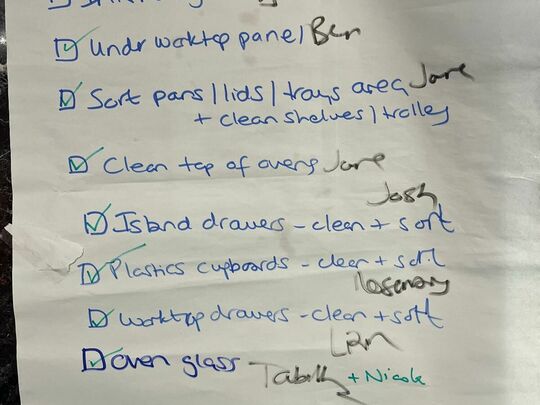 Undr worktop panel Ben
Sort pans/lids/trays area Jane
+ clean shelves/trolley
Clean top of ovens Jane
Josh
Island drawers - clean + sort
Plastics cupboards - clean + sort
Rosemary
Worktop drawers - clean + sort
oven glass - + Nicole